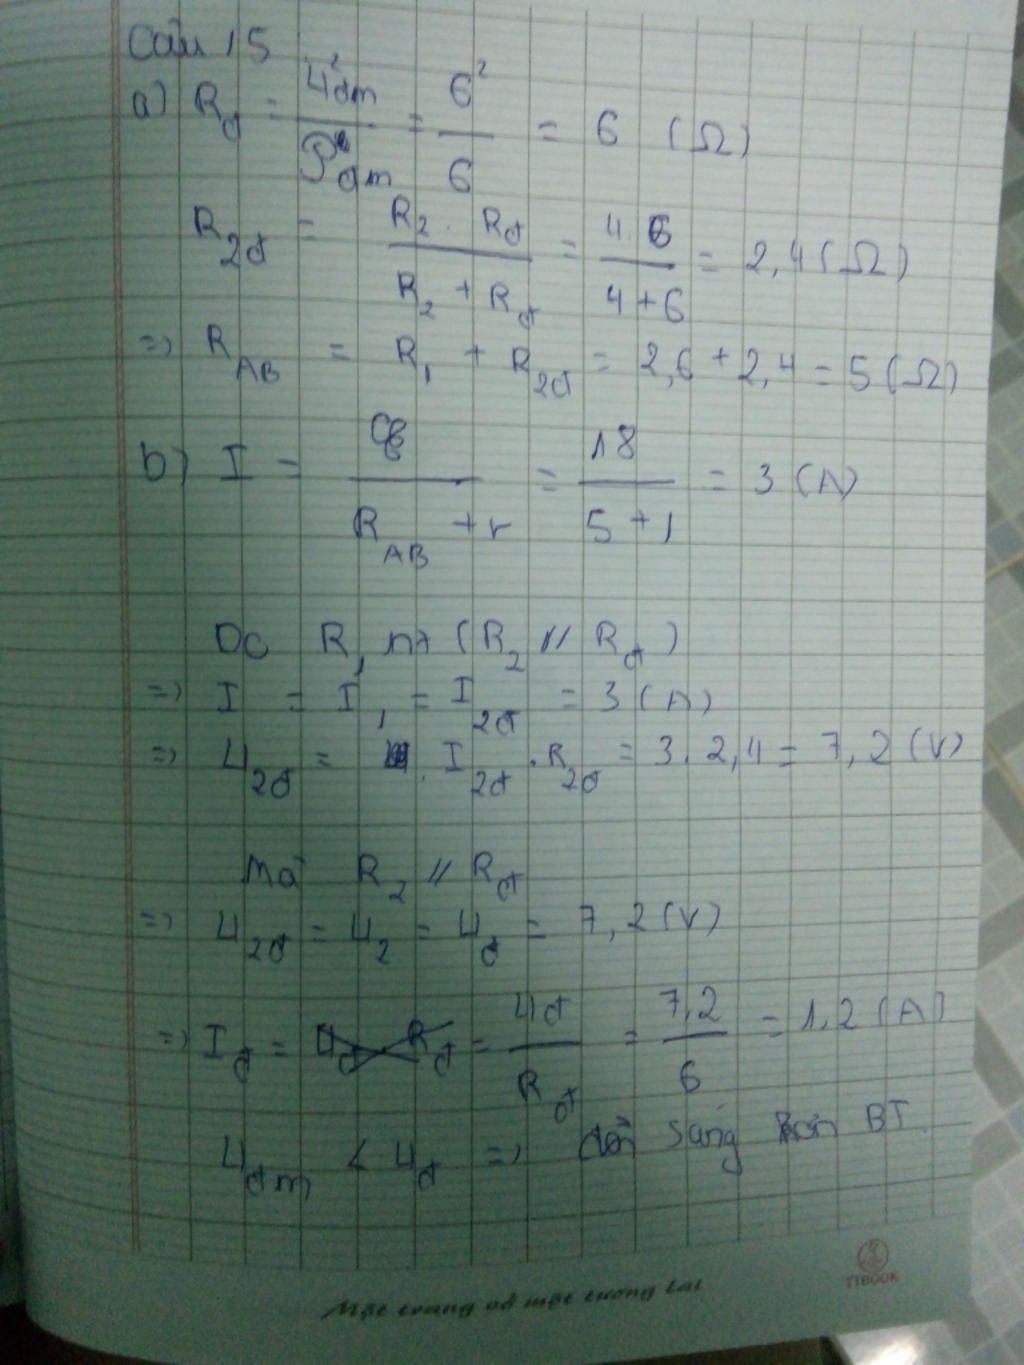 Câu 15
a) Rđ = U²đm / Pđm = 6² / 6 = 6 (Ω)
R2đ = R2 . Rđ / R2 + Rđ = 4.6 / 4+6 = 2,4 (Ω)
=> RAB = R1 + R2đ = 2,6 + 2,4 = 5 (Ω)
b) I = ξ / RAB + r = 18 / 5+1 = 3 (A)
Do R1 nt (R2 // Rđ)
=> I = I1 = I2đ = 3 (A)
=> U2đ = I2đ . R2đ = 3. 2,4 = 7,2 (V)
Mà R2 // Rđ
=> U2đ = U2 = Uđ = 7,2 (V)
=> Iđ = Uđ / Rđ = 7,2 / 6 = 1,2 (A)
Uđm < Uđ => đèn sáng hơn BT.
TTBOOK
Một trang vở một tương lai